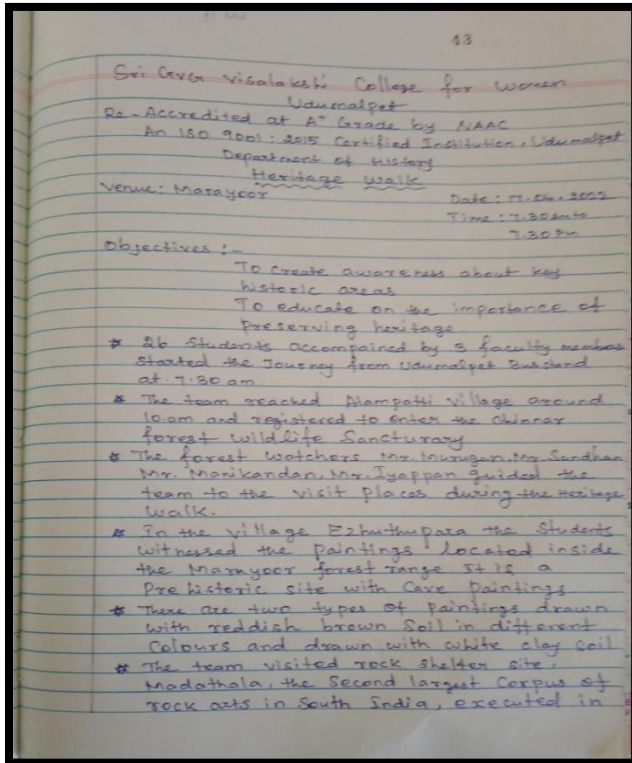 43
Sri GVG Visalakshi College for Women
Udumalpet
Re-Accredited at A+ Grade by NAAC
An ISO 9001:2015 Certified Institution, Udumalpet
Department of History
Heritage Walk
Venue: Marayoor
Date:
Time: 7.30am to
7.30pm
Objectives :-
To create awareness about key
historic areas
To educate on the importance of
preserving heritage
* 26 Students accompained by 3 faculty members
started the Journey from Udumalpet Busstand
at 7.30 am.
* The team reached Alampatti village around
10.am and registered to enter the Chinnar
forest wildlife Sancturary
* The forest watchers Mr. Murugan, Mr. Sandhan
Mr. Manikandan, Mr. Iyappan guided the
team to the visit places during the Heritage
walk.
* In the village Ezhuthupara the Students
witnessed the paintings located inside
the Marayoor forest range. It is a
Pre historic site with Cave Paintings
* There are two types of paintings drawn
with reddish brown Soil in different
Colours and drawn with white clay soil
* The team visited rock shelter site,
Madathala, the Second largest Corpus of
rock arts in South India, executed in